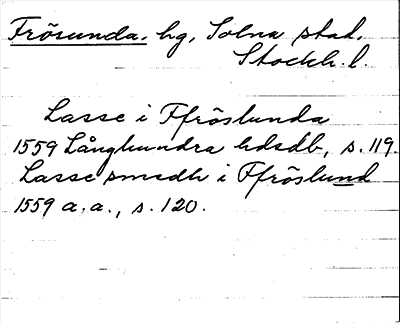 Frösunda. hg, Solna stad,
Stockh. l.
Lasse i Ffröslunda
1559 Långhundra hdsdb, s. 119.
Lasse smedh i Ffröslund
1559 a.a., s. 120.